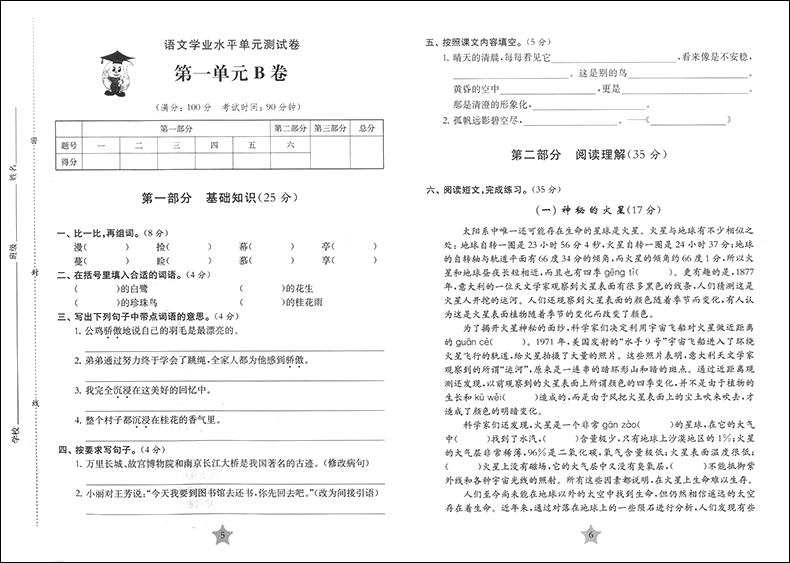 语文学业水平单元测试卷
第一单元 B 卷
(满分:100 分 考试时间:90 分钟)
第一部分 第二部分 第三部分 总分
题号 一 二 三 四 五 六
得分
第一部分 基础知识(25 分)
一、比一比,再组词。(8 分)
漫( ) 捡( ) 幕( ) 亭( )
蔓( ) 睑( ) 慕( ) 享( )
二、在括号里填入合适的词语。(4 分)
( )的白鹭 ( )的花生
( )的珍珠鸟 ( )的桂花雨
三、写出下列句子中带点词语的意思。(4 分)
1. 公鸡骄傲地说自己的羽毛是最漂亮的。
2. 弟弟通过努力终于学会了跳绳,全家人都为他感到骄傲。
3. 我完全沉浸在这美好的回忆中。
4. 整个村子都沉浸在桂花的香气里。
四、按要求写句子。(4 分)
1. 万里长城、故宫博物院和南京长江大桥是我国著名的古迹。(修改病句)
2. 小丽对王芳说:“今天我要到图书馆去还书,你先回去吧。”(改为间接引语)
5
学校
班级
姓名
密
封
线
五、按照课文内容填空。(5 分)
1. 晴天的清晨,每每看见它 ,看来像是不安稳,
。这是别的鸟 。
黄昏的空中 ,更是 。
那是清澄的形象化, 。
2. 孤帆远影碧空尽, 。——《 》
第二部分 阅读理解(35 分)
六、阅读短文,完成练习。(35 分)
(一) 神秘的火星(17 分)
太阳系中唯一还可能存在生命的星球是火星。火星与地球有不少相似之
处:地球自转一圈是 23 小时 56 分 4 秒,火星自转一圈是 24 小时 37 分;地球
的自转轴与轨道平面有 66 度 34 分的倾角,而火星的倾角约 66 度 1 分,所以火
星和地球昼夜长短相近,而且也有四季 gēng tì( )。更有趣的是,1877
年,意大利的一位天文学家观察到火星表面有很多黑色的线条,人们猜测这是
火星人开挖的运河。人们还观察到火星表面的颜色随着季节而变化,有人认
为这是火星表面植物随着季节的变化而改变了颜色。
为了揭开火星神秘的面纱,科学家们决定利用宇宙飞船对火星做近距离
的 guān cè( )。1971 年,美国发射的“水手 9 号”宇宙飞船进入了环绕
火星飞行的轨道,给火星拍摄了大量的照片。这些照片表明,意大利天文学家
观察到的所谓“运河”,原来是一连串的暗环形山和暗的斑点。通过近距离观
测还发现,以前观察到的火星表面上所谓颜色的四季变化,并不是由于植物的
生长和 kū wěi( )造成的,而是由于风把火星表面上的尘土吹来吹去,才
造成了颜色的明暗变化。
科学家们还发现,火星是一个非常 gān zào( )的星球,在它的大气
中( )找到了水汽,( )含量极少,只有地球上沙漠地区的 1%;火星
的大气层非常稀薄,96%是二氧化碳,氧气含量极低;火星表面温度很低;
( )火星上没有磁场,它的大气层中又没有臭氧层,( )不能抵御紫
外线和各种宇宙光线的照射。所有这些因素都说明,在火星上生命难以生存。
人们至今尚未能在地球以外的太空中找到生命,但仍然相信遥远的太空
存在着生命。近年来,通过对落在地球上的一些陨石进行分析,人们发现有些
6